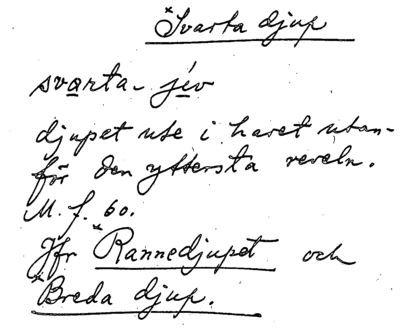 *Svarta djup
svarta- jév
djupet ute i havet utan-
för den yttersta reveln.
M. f. 60.
Jfr *Rannedjupet och
*Breda djup.